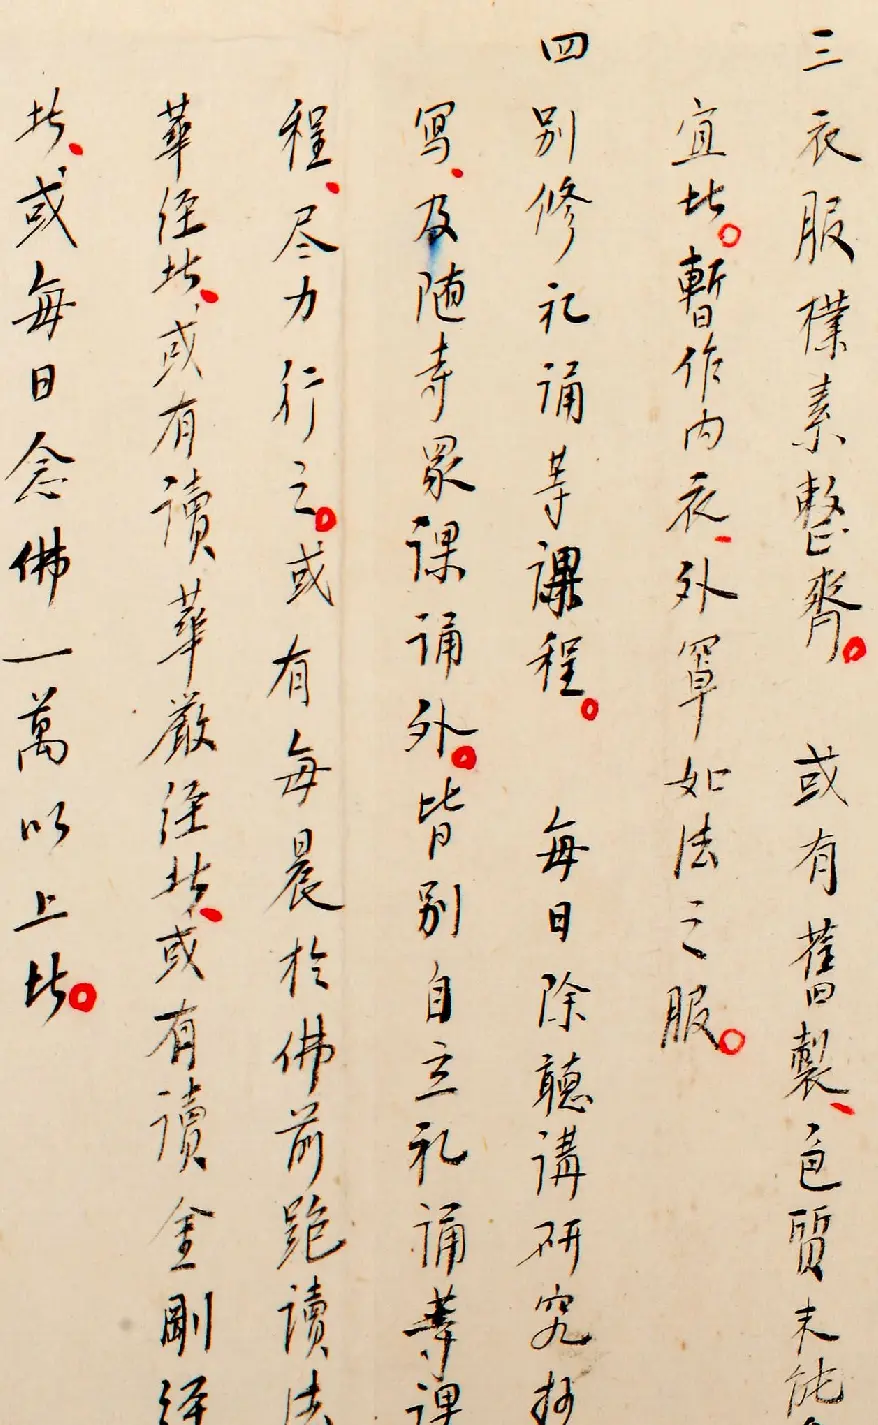 三 衣服樸素整齊。 或有舊製、色質未能
宜者。暫作內衣、外罩如法之服。
四 別修礼誦等課程。 每日除聽講研究抄
寫、及随寺眾課誦外。皆別自立礼誦等課
程、尽力行之。或有每晨於佛前跪讀法
華经者、或有讀華嚴经者、或有讀金剛经
者、或每日念佛一萬以上者。